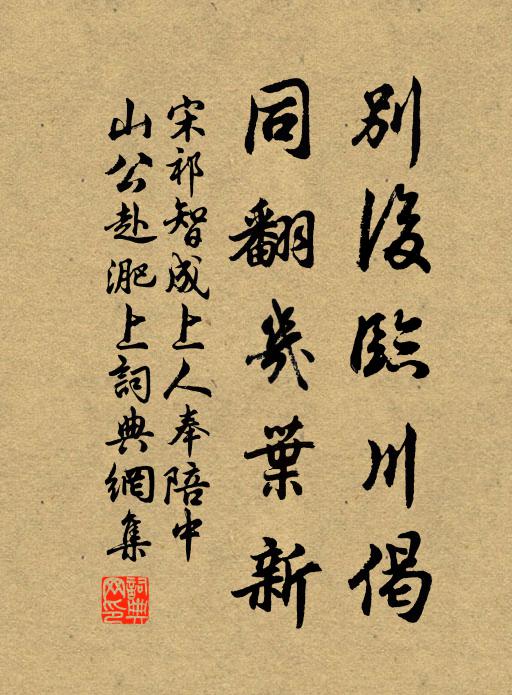 別後臨川偈
同翻幾葉新
宋祁智成上人奉陪中
山公赴淝上詞典網集
詞典網印